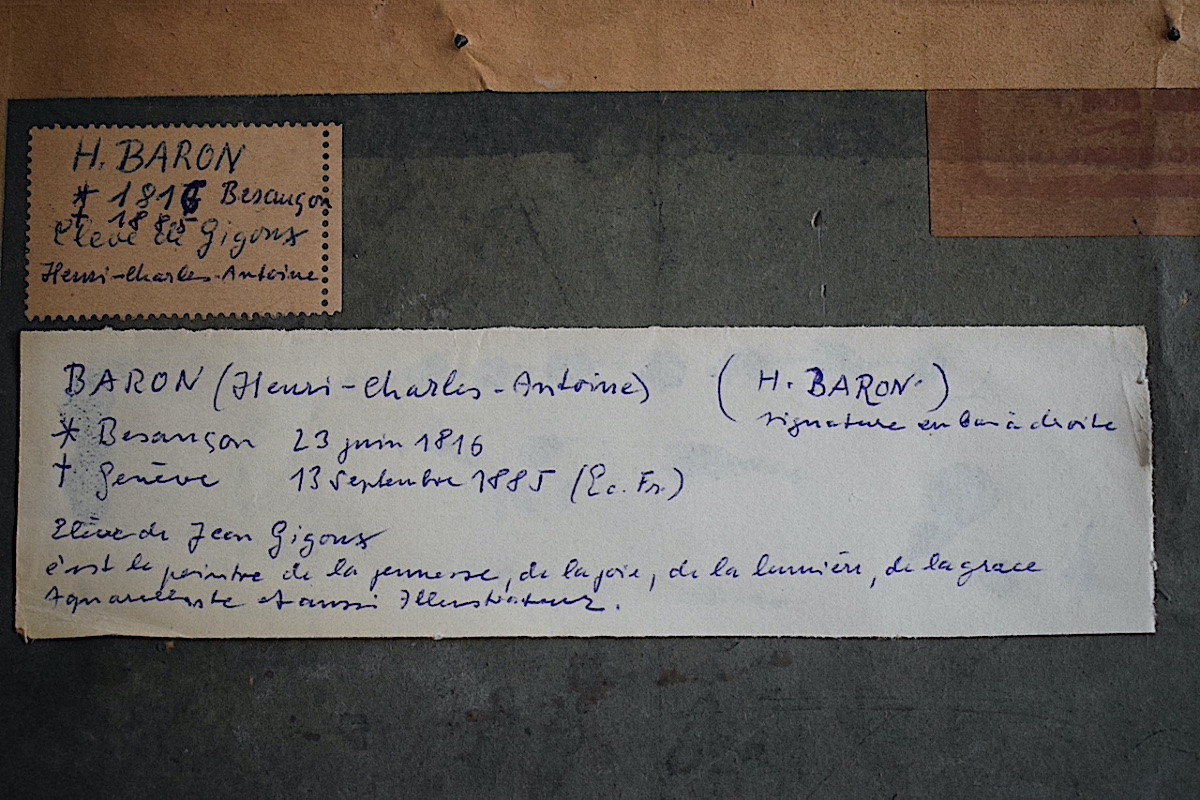 H. BARON
* 1816 Besançon
† 1885
Elève de Gigoux
Henri-Charles-Antoine
BARON (Henri-Charles-Antoine) (H. BARON.)
signature en bas à droite
* Besançon 23 juin 1816
† Genève 13 Septembre 1885 (Ec. Fr.)
Elève de Jean Gigoux
c'est le peintre de la jeunesse, de la joie, de la lumière, de la grace
Aquarelliste et aussi Illustrateur.